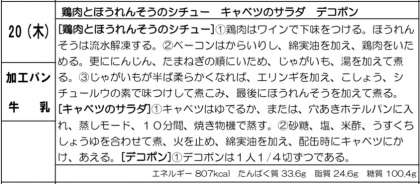 鶏肉とほうれんそうのシチュー キャベツのサラダ デコポン
20 (木)
加工パン
牛 乳
[鶏肉とほうれんそうのシチュー]①鶏肉はワインで下味をつける。ほうれん
そうは流水解凍する。②ベーコンはからいりし、綿実油を加え、鶏肉をいた
める。更ににんじん、たまねぎの順にいため、じゃがいも、湯を加えて煮
る。③じゃがいもが半ば柔らかくなれば、エリンギを加え、こしょう、シ
チュールウの素で味つけして煮こみ、最後にほうれんそうを加えて煮る。
[キャベツのサラダ]①キャベツはゆでるか、または、穴あきホテルパンに入
れ、蒸しモード、１０分間、焼き物機で蒸す。②砂糖、塩、米酢、うすくち
しょうゆを合わせて煮、火を止め、綿実油を加え、配缶時にキャベツにか
け、あえる。[デコポン]①デコポンは１人１/４切ずつである。
エネルギー 807kcal たんぱく質 33.6g 脂質 24.6g 糖質 100.4g